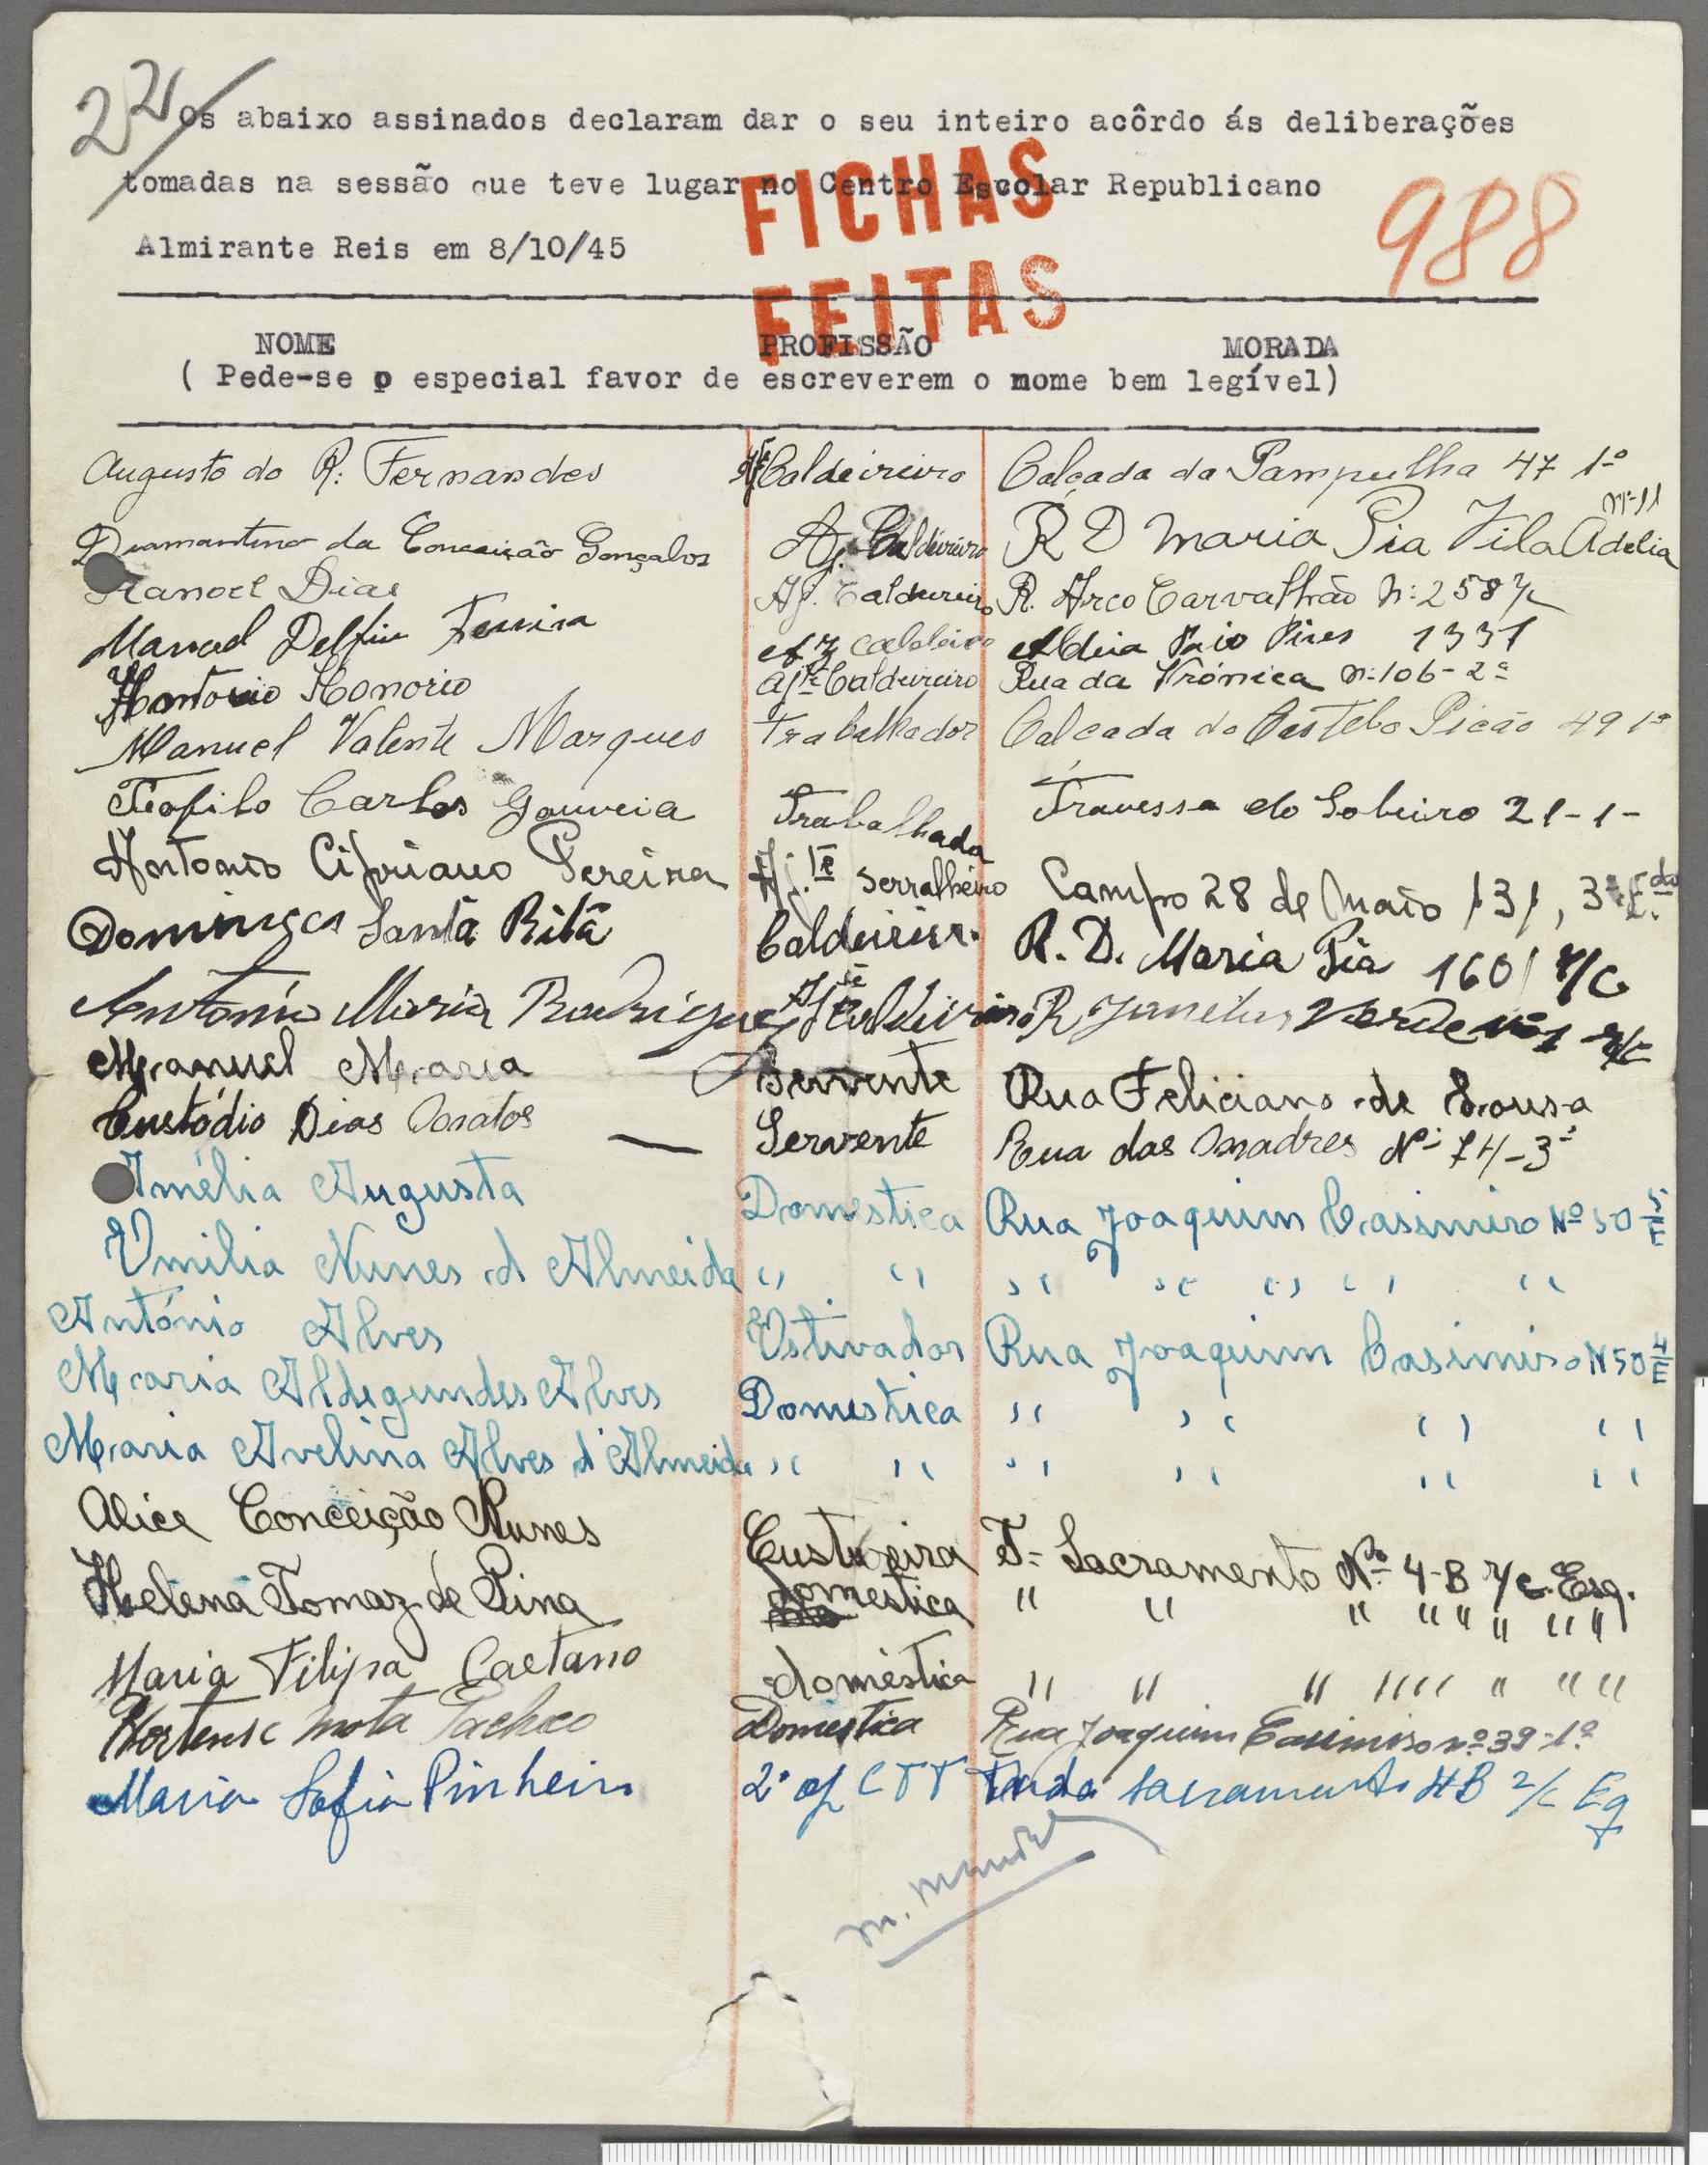 22
Os abaixo assinados declaram dar o seu inteiro acôrdo ás deliberações
tomadas na sessão que teve lugar no Centro Escolar Republicano
Almirante Reis em 8/10/45
FICHAS
FEITAS
988
NOME PROFISSÃO MORADA
( Pede-se o especial favor de escreverem o nome bem legível)
Augusto do R. Fernandes Caldeireiro Calçada da Pampulha 47 1º
Diamantino da Conceição Gonçalves Aj. Caldeireiro R D Maria Pia Vila Adelia nº 11
Manoel Dias Aj. Caldeireiro R. Arco Carvalhão Nº 258 r/c
Manuel Delfin Ferreira Caldeireiro Aldeia Paio Pires 1331
Hantonio Honorio ajte Caldeireiro Rua da Verónica Nº 106-2º
Manuel Valente Marques Trabalhador Calçada do Castelo Picão 49 1º
Teofilo Carlos Gouveia Trabalhada Travessa do Sobeiro 21-1-
Antonio Cipriano Pereira Aj.te Serralheiro Campo 28 de Maio 131, 3º E.do
Domingos Santa Rita Caldeireir. R. D. Maria Pia 160 r/c
Antonio Maria Rodrigues Ajte Caldeireiro R Janelas Verde nº 1 r/c
Manuel Maria Servente Rua Feliciano de Sousa
Custódio Dias Matos — Servente Rua das Madres Nº 74-3º
Amélia Augusta Domestica Rua Joaquim Casimiro Nº 50 5/E
Emilia Nunes d Almeida " " " " " " "
António Alves Estivador Rua Joaquim Casimiro N 50 4/E
Maria Aldegundes Alves Domestica " " " "
Maria Avelina Alves d'Almeida " " " " " "
Alice Conceição Nunes Custureira T. Sacramento Nº 4-B r/c. Esq.
Helena Tomaz de Pina domestica " " " " " " " "
Maria Filipa Caetano doméstica " " " " " " " "
Hortense Mota Pacheco Domestica Rua Joaquim Casimiro nº 39-1º
Maria Sofia Pinheiro 2º of CTT T. do Sacramento 4 B r/c Eq